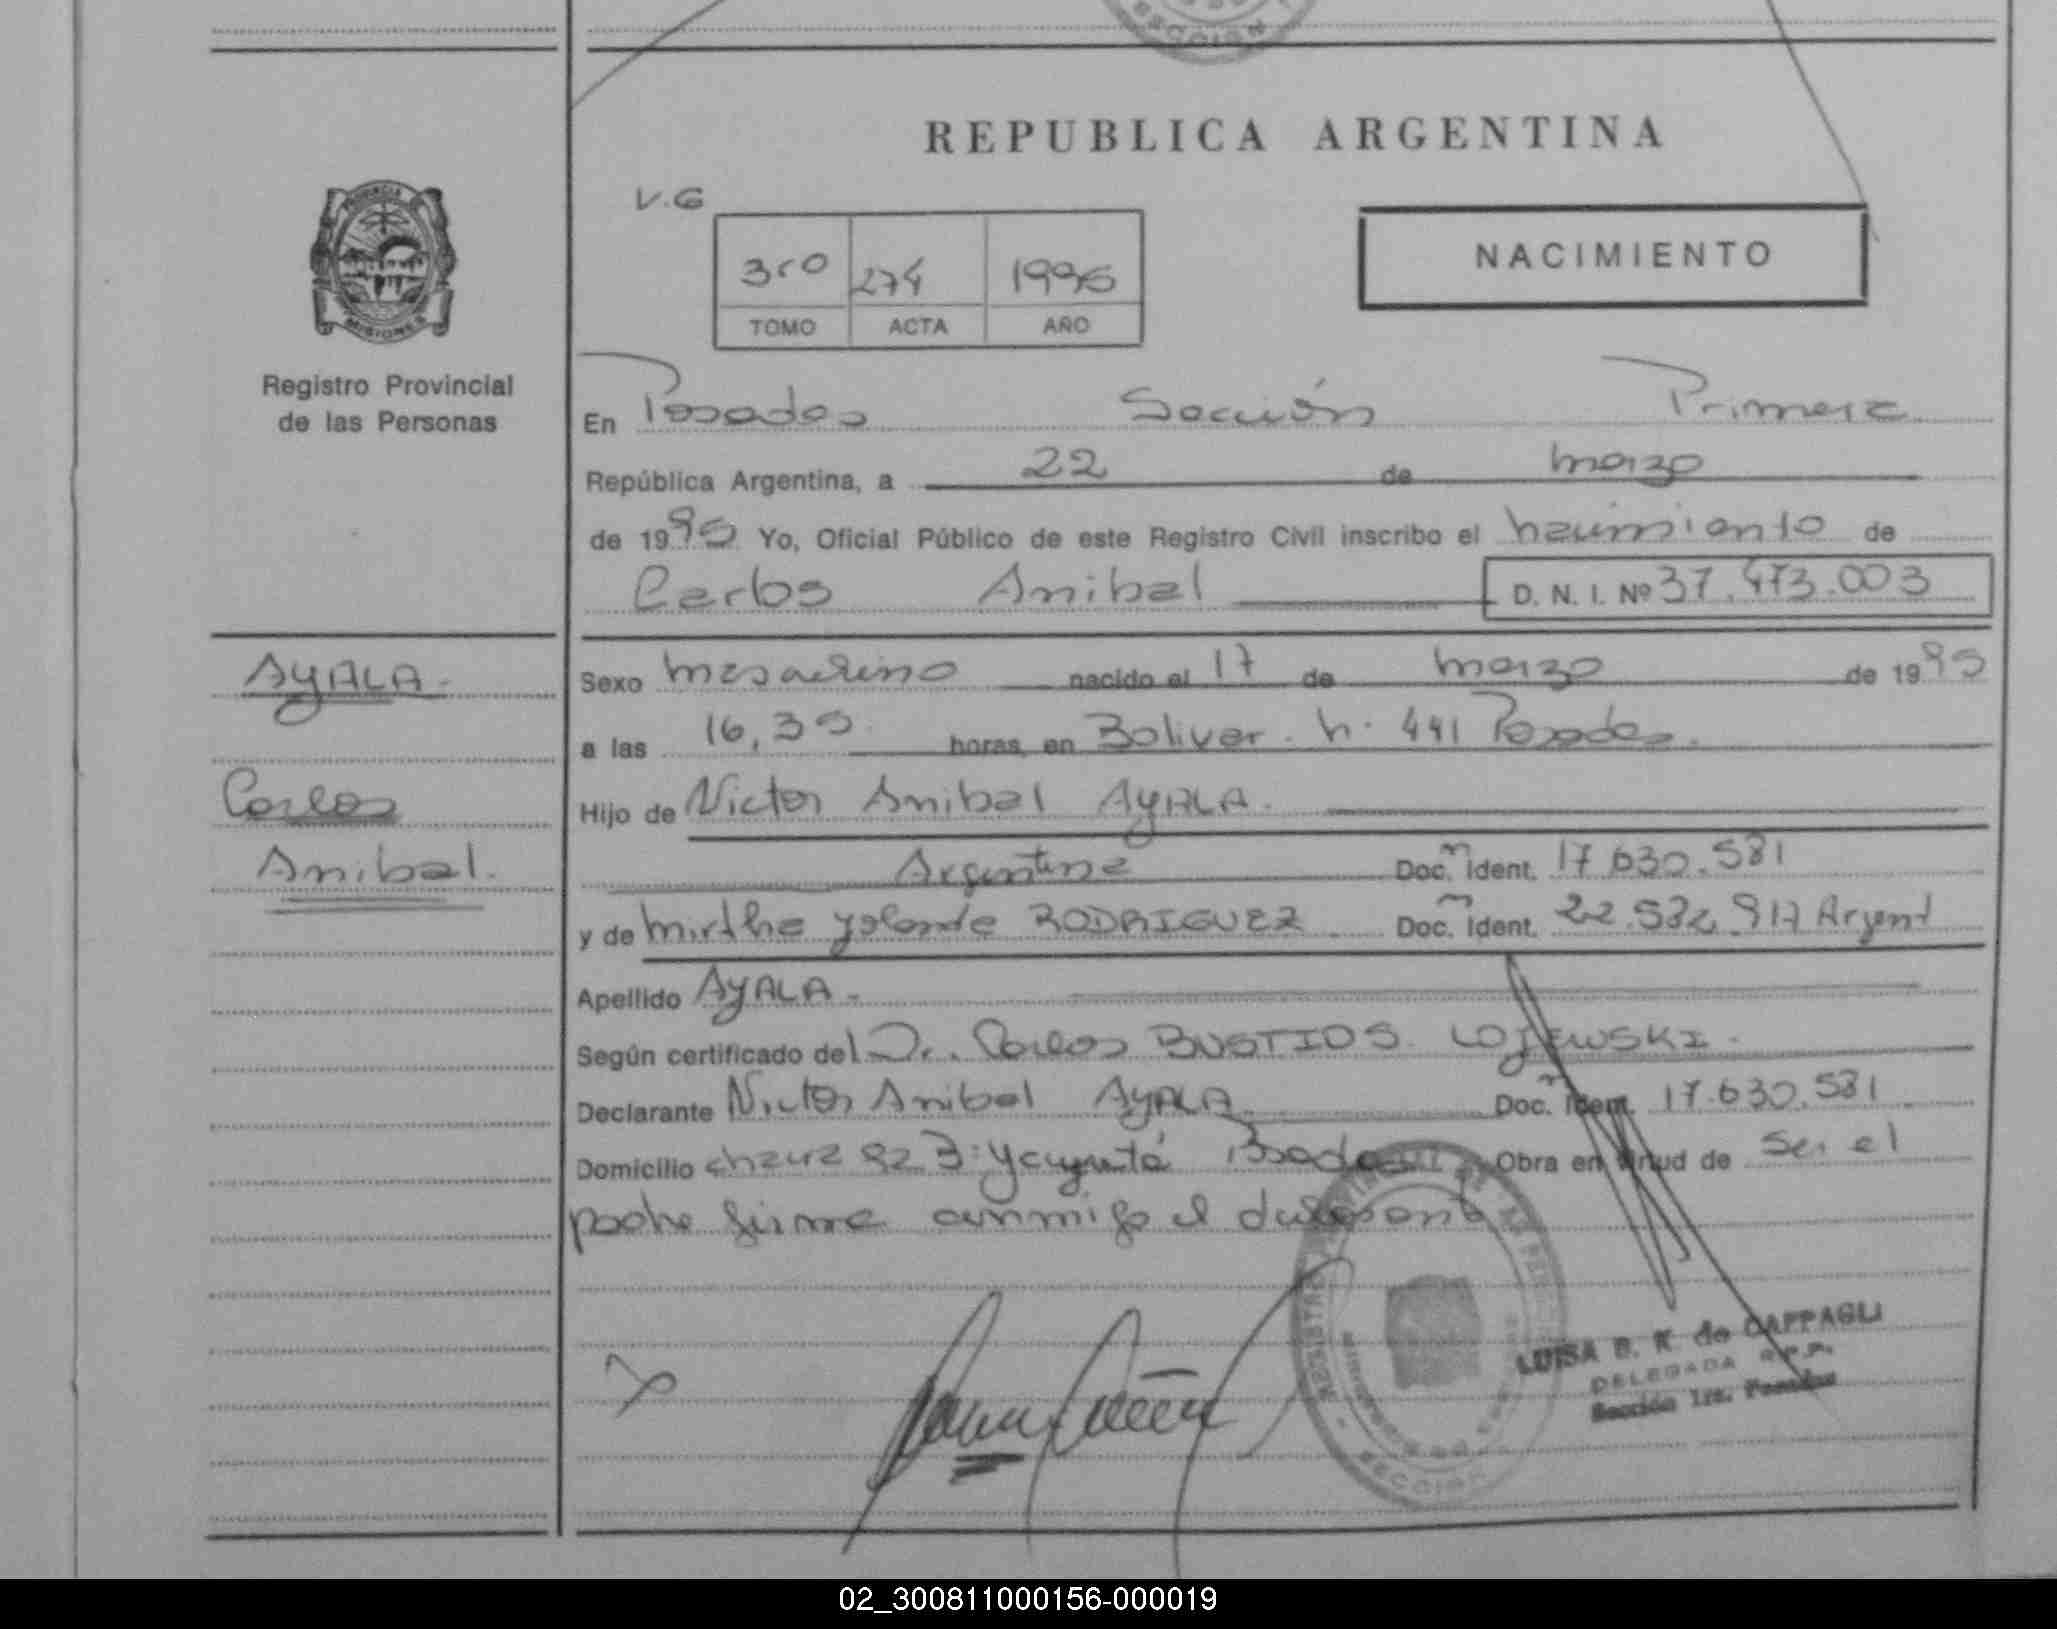 SECCION
REPUBLICA ARGENTINA
V.G
NACIMIENTO
3ro 274 1995
TOMO ACTA AÑO
PROVINCIA
MISIONES
Registro Provincial
de las Personas
En Posadas Sección Primera
República Argentina, a 22 de marzo
de 1995 Yo, Oficial Público de este Registro Civil inscribo el nacimiento de
Carlos Anibal D. N. I. Nº 37.473.003
AYALA.
Carlos
Anibal.
Sexo masculino nacido el 17 de marzo de 1995
a las 16,35 horas, en Bolivar. n. 441 Posadas.
Hijo de Victor Anibal AYALA.
Argentina Doc. Ident. 17.630.581
y de Mirtha Yolanda RODRIGUEZ. Doc. Ident. 22.532.917 Argent
Apellido AYALA.
Según certificado del Dr. Carlos BUSTIOS LOJEWSKI.
Declarante Victor Anibal AYALA Doc. Ident. 17.630.581
Domicilio chacra 92 B: Yacyretá Posadas Obra en virtud de ser el
padre firma conmigo el declarante
LUISA B. K. de CAPPAGLI
DELEGADA R.P.P.
Sección 1ra. Posadas
SECCION
02_300811000156-000019